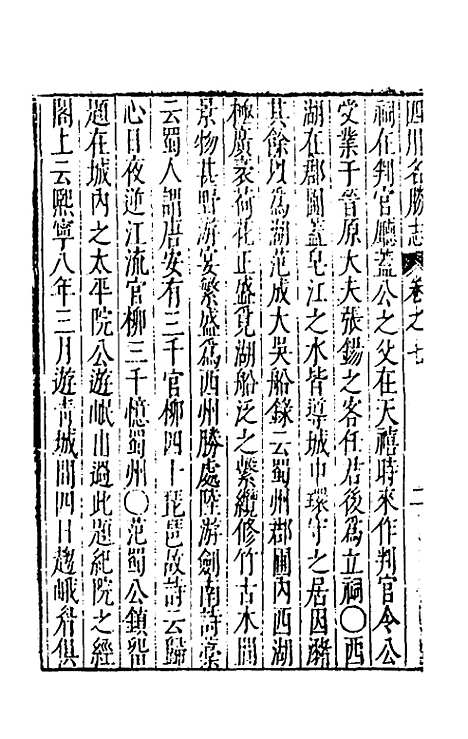 四川名勝志 卷之七 二
祠在判官廳蓋公之父在天禧時來作判官令公
受業于晉原大夫張錫之客任君後爲立祠○西
湖在郡圃蓋皂江之水皆導城中環守之居因瀦
其餘以爲湖范成大吳船錄云蜀州郡圃內西湖
極廣袤荷花正盛覓湖船泛之繫纜修竹古木間
景物甚野游宴繁盛爲西州勝處陸游劍南詩稾
云蜀人謂唐安有三千官柳四十琵琶故詩云歸
心日夜逆江流官柳三千憶蜀州○范蜀公鎮留
題在城內之太平院公遊岷山過此題紀院之經
閣上云熙寧八年三月遊青城閏四日趨峨眷俱